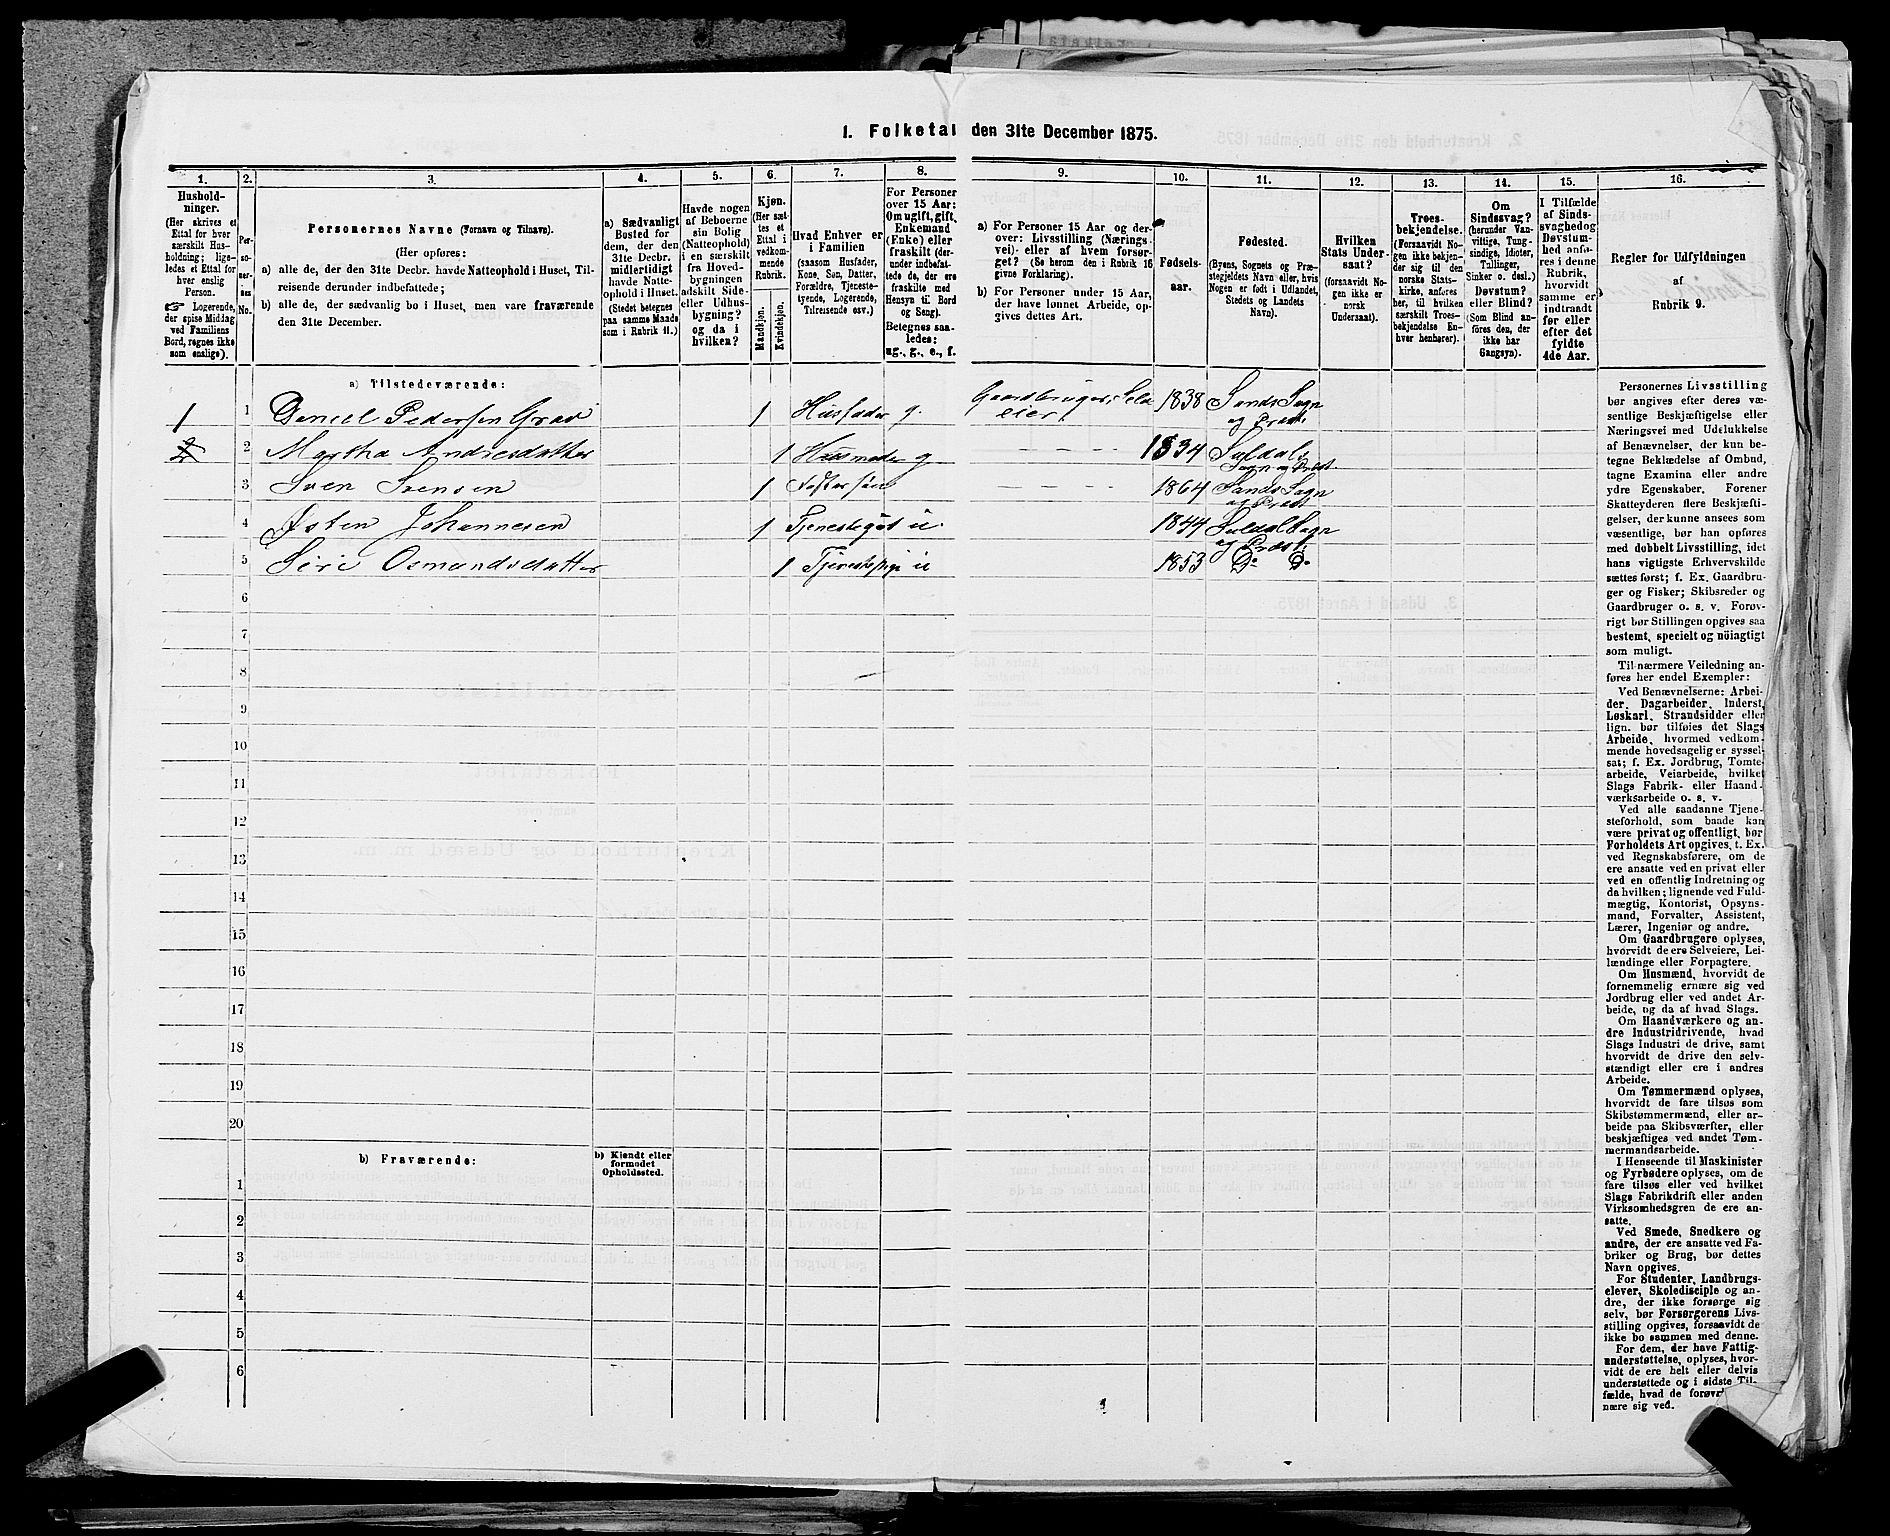 1. Folketal den 31te December 1875.
1.
Hushold-
ninger.
(Her skrives et
Ettal for hver
særskilt Hus-
holdning; lige-
ledes et Ettal for
hver enslig
Person.
☞ Logerende,
der spise Middag
ved Familiens
Bord, regnes ikke
som enslige).
2.
Per-
so-
ner-
nes
No.
3.
Personernes Navne (Fornavn og Tilnavn).
(Her opføres:
a) alle de, der den 31te Decbr. havde Natteophold i Huset, Til-
reisende derunder indbefattede;
b) alle de, der sædvanlig bo i Huset, men vare fraværende
den 31te December.
4.
a) Sædvanligt
Bosted for
dem, der den
31te Decbr.
midlertidigt
havde Natte-
ophold i Huset.
(Stedet betegnes
paa samme Maade
som i Rubrik 11.)
5.
Havde nogen
af Beboerne
sin Bolig
(Natteophold)
i en særskilt
fra Hoved-
bygningen
adskilt Side-
eller Udhus-
bygning?
og da i
hvilken?
6.
Kjøn.
(Her sæt-
tes et
Ettal i
vedkom-
mende
Rubrik.
Mandkjøn.
Kvindekjøn.
7.
Hvad Enhver er
i Familien
(saasom Husfader,
Kone, Søn, Datter,
Forældre, Tjeneste-
tyende, Logerende,
Tilreisende osv.)
8.
For Personer
over 15 Aar:
Om ugift, gift,
Enkemand
(Enke) eller
fraskilt (der-
under indbefat-
tede de, der ere
fraskilte med
Hensyn til Bord
og Seng).
Betegnes saa-
ledes:
ug., g., e., f.
9.
a) For Personer 15 Aar og der-
over: Livsstilling (Nærings-
vei)- eller af hvem forsør-
get? (Se herom den i Rubrik 16
givne Forklaring).
b) For Personer under 15 Aar,
der have lønnet Arbeide, op-
gives dettes Art.
10.
Fødsels-
aar.
11.
Fødested.
(Byens, Sognets og Præ-
stegjeldets Navn eller, hvis
Nogen er født i Udlandet,
Stedets og Landets
Navn).
12.
Hvilken
Stats Under-
saat?
(forsaavidt No-
gen ikke er
norsk
Undersaat).
13.
Troes-
bekjendelse.
(Forsaavidt No-
gen ikke bekjen-
der sig til den
norske Stats-
kirke, anføres
her, til hvilken
særskilt Troes-
bekjendelse En-
hver henhører).
14.
Om
Sindssvag?
(herunder Van-
vittige, Tung-
sindige, Idioter,
Tullinger,
Sinker o. desl.)
Døvstum?
eller Blind?
(Som Blind an-
føres den, der
ikke har
Gangsyn).
15.
I Tilfælde
af Sinds-
svaghed og
Døvstum-
hed anfø-
res i denne
Rubrik,
hvorvidt
samme er
indtraadt
før eller
efter det
fyldte
4de Aar.
16.
Regler for Udfyldningen
af
Rubrik 9.
a) Tilstedeværende:
1 1 Daniel Pedersen Grav 1 Husfader g. Gaardbruger, Selv 1838 Sands Sogn
eier og Præst.
2 2 Martha Andersdatter 1 Husmoder g — — — 1834 Suldals
Sogn og Præst.
3 Sven Svensen 1 Fostersøn — — — 1864 Sands Sogn
og Præst
4 Østen Johannesen 1 Tjenestegut u. 1844 Suldal Sogn
og Præst.
5 Siri Osmundsdatter 1 Tjenestepige u 1853 Do Do
6
7
8
9
10
11
12
13
14
15
16
17
18
19
20
b) Fraværende:
b) Kjendt eller
formodet
Opholdssted.
1
2
3
4
5
6
Personernes Livsstilling
bør angives efter deres væ-
sentlige Beskjæftigelse eller
Næringsvei med Udelukkelse
af Benævnelser, der kun be-
tegne Beklædelse af Ombud,
tagne Examina eller andre
ydre Egenskaber. Forener
Skatteyderen flere Beskjæfti-
gelser, der kunne ansees som
væsentlige, bør han opføres
med dobbelt Livsstilling, idet
hans vigtigste Erhvervskilde
sættes først; f. Ex. Gaardbru-
ger og Fisker; Skibsreder og
Gaardbruger o. s. v. Forøv-
rigt bør Stillingen opgives saa
bestemt, specielt og nöiagtigt
som muligt.
Til nærmere Veiledning an-
føres her endel Exempler:
Ved Benævnelserne: Arbei-
der, Dagarbeider, Inderst,
Løskarl, Strandsidder eller
lign. bør tilføies det Slags
Arbeide, hvormed vedkom-
mende hovedsagelig er syssel-
sat; f. Ex. Jordbrug, Tomte-
arbeide, Veiarbeide, hvilket
Slags Fabrik- eller Haand-
værksarbeide o. s. v.
Ved alle saadanne Tjene-
steforhold, som baade kan
være privat og offentligt, bør
Forholdets Art opgives, t. Ex.
ved Regnskabsførere, om de
ere ansatte ved en privat eller
ved en offentlig Indretning og
da hvilken; lignende ved Fuld-
mægtig, Kontorist, Opsyns-
mand, Forvalter, Assistent,
Lærer, Ingeniør og andre.
Om Gaardbrugere oplyses,
hvorvidt de ere Selveiere, Lei-
lændinge eller Forpagtere.
Om Husmænd, hvorvidt de
fornemmelig ernære sig ved
Jordbrug eller ved andet Ar-
beide, og da af hvad Slags.
Om Haandværkere og an-
dre Industridrivende, hvad
Slags Industri de drive, samt
hvorvidt de drive den selv-
stændigt eller ere i andres
Arbeide.
Om Tømmermænd oplyses,
hvorvidt de fare tilsøs som
Skibstømmermænd, eller ar-
beide paa Skibsværfter, eller
beskjæftiges ved andet Tøm-
mermandsarbeide.
I Henseende til Maskinister
og Fyrbødere oplyses, om de
fare tilsøs eller ved hvilket
Slags Fabrikdrift eller anden
Virksomhedsgren de ere an-
satte.
Ved Smede, Snedkere og
andre, der ere ansatte ved Fa-
briker og Brug, bør dettes
Navn opgives.
For Studenter, Landbrugs-
elever, Skoledisciple og an-
dre, der ikke forsørge sig
selv, bør Forsørgerens Livs-
stilling opgives, forsaavidt de
ikke bo sammen med denne.
For dem, der have Fattig-
understøttelse, oplyses, hvor-
vidt de ere helt eller delvis
understøttede og i sidste Til-
fælde, hvad de forøvrigt
nære sig ved.